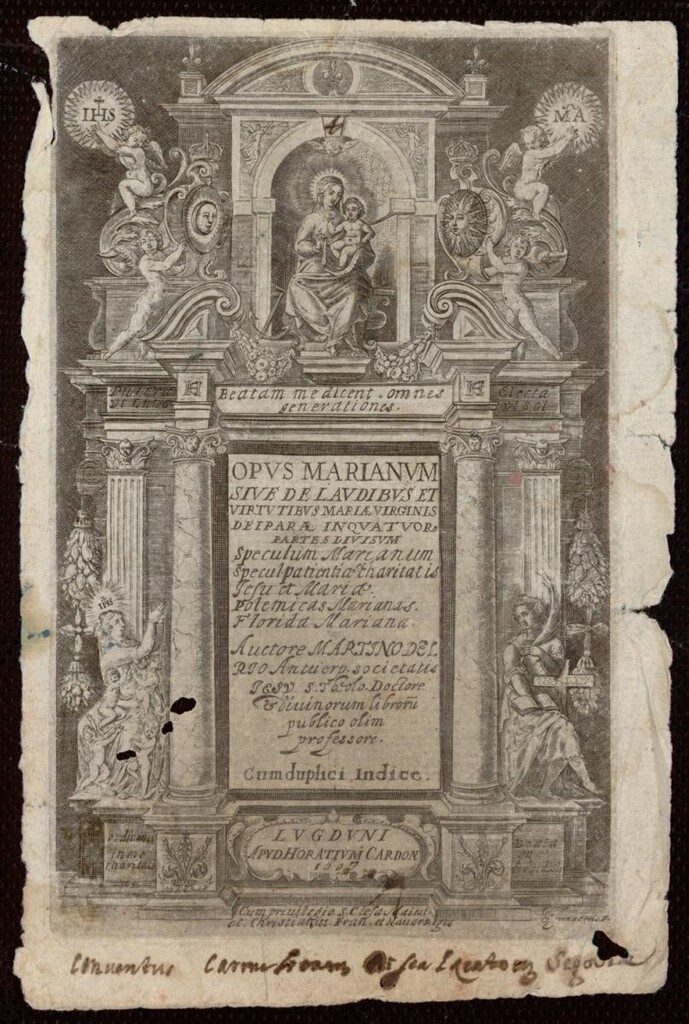 IHS
MA
Pulcra
ut Luna
Beatam me dicent omnes
generationes.
Electa
ut Sol
OPVS MARIANVM
SIVE DE LAVDIBVS ET
VIRTVTIBVS MARIÆ VIRGINIS
DEIPARÆ IN QVATVOR
PARTES DIVISVM
Speculum Marianum
Specul patientiæ charitatis
Iesu et Mariæ.
Polemicas Marianas.
Florida Mariana.
Auctore MARTINO DEL
RIO Antuerp. societatis
IESV S. Theolo. Doctore
& diuinorum librorũ
publico olim
professore.
Cum duplici Indice.
IHS
in me
charitatē
Beata
LVGDVNI
APVD HORATIVM CARDON
1607
Cum priuilegio S. Cæsa. Maiest.
et Christianiss. Fran. et Nauar. Regis
Conuentus Carmelitarum